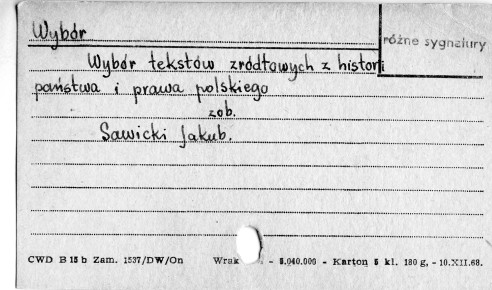 Wybór
różne sygnatury
Wybór tekstów źródłowych z historii
państwa i prawa polskiego
zob.
Sawicki Jakub.
CWD B 15 b Zam. 1537/DW/On Wrak - 5.040.000 - Karton 5 kl. 180 g, - 10.XII.68.